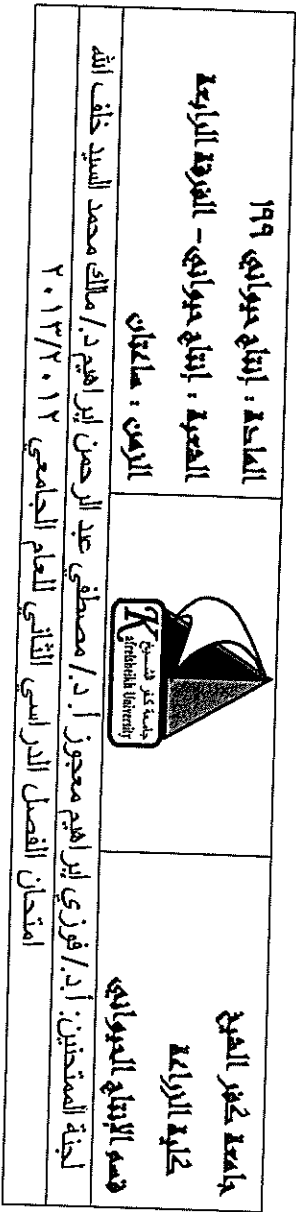 جامعة كفر الشيخ
كلية الزراعة
قسم الإنتاج الحيواني
جامعة كفر الشيخ
Kafrelsheikh University
المادة : إنتاج حيواني ١٩٩
الشعبة : إنتاج حيواني - الفرقة الرابعة
الزمن : ساعتان
لجنة الممتحنين: أ.د/ فوزي ابراهيم معجوز أ.د/ مصطفي عبد الرحمن ابراهيم د/ مالك محمد السيد خلف الله
امتحان الفصل الدراسي الثاني للعام الجامعي ٢٠١٣/٢٠١٢